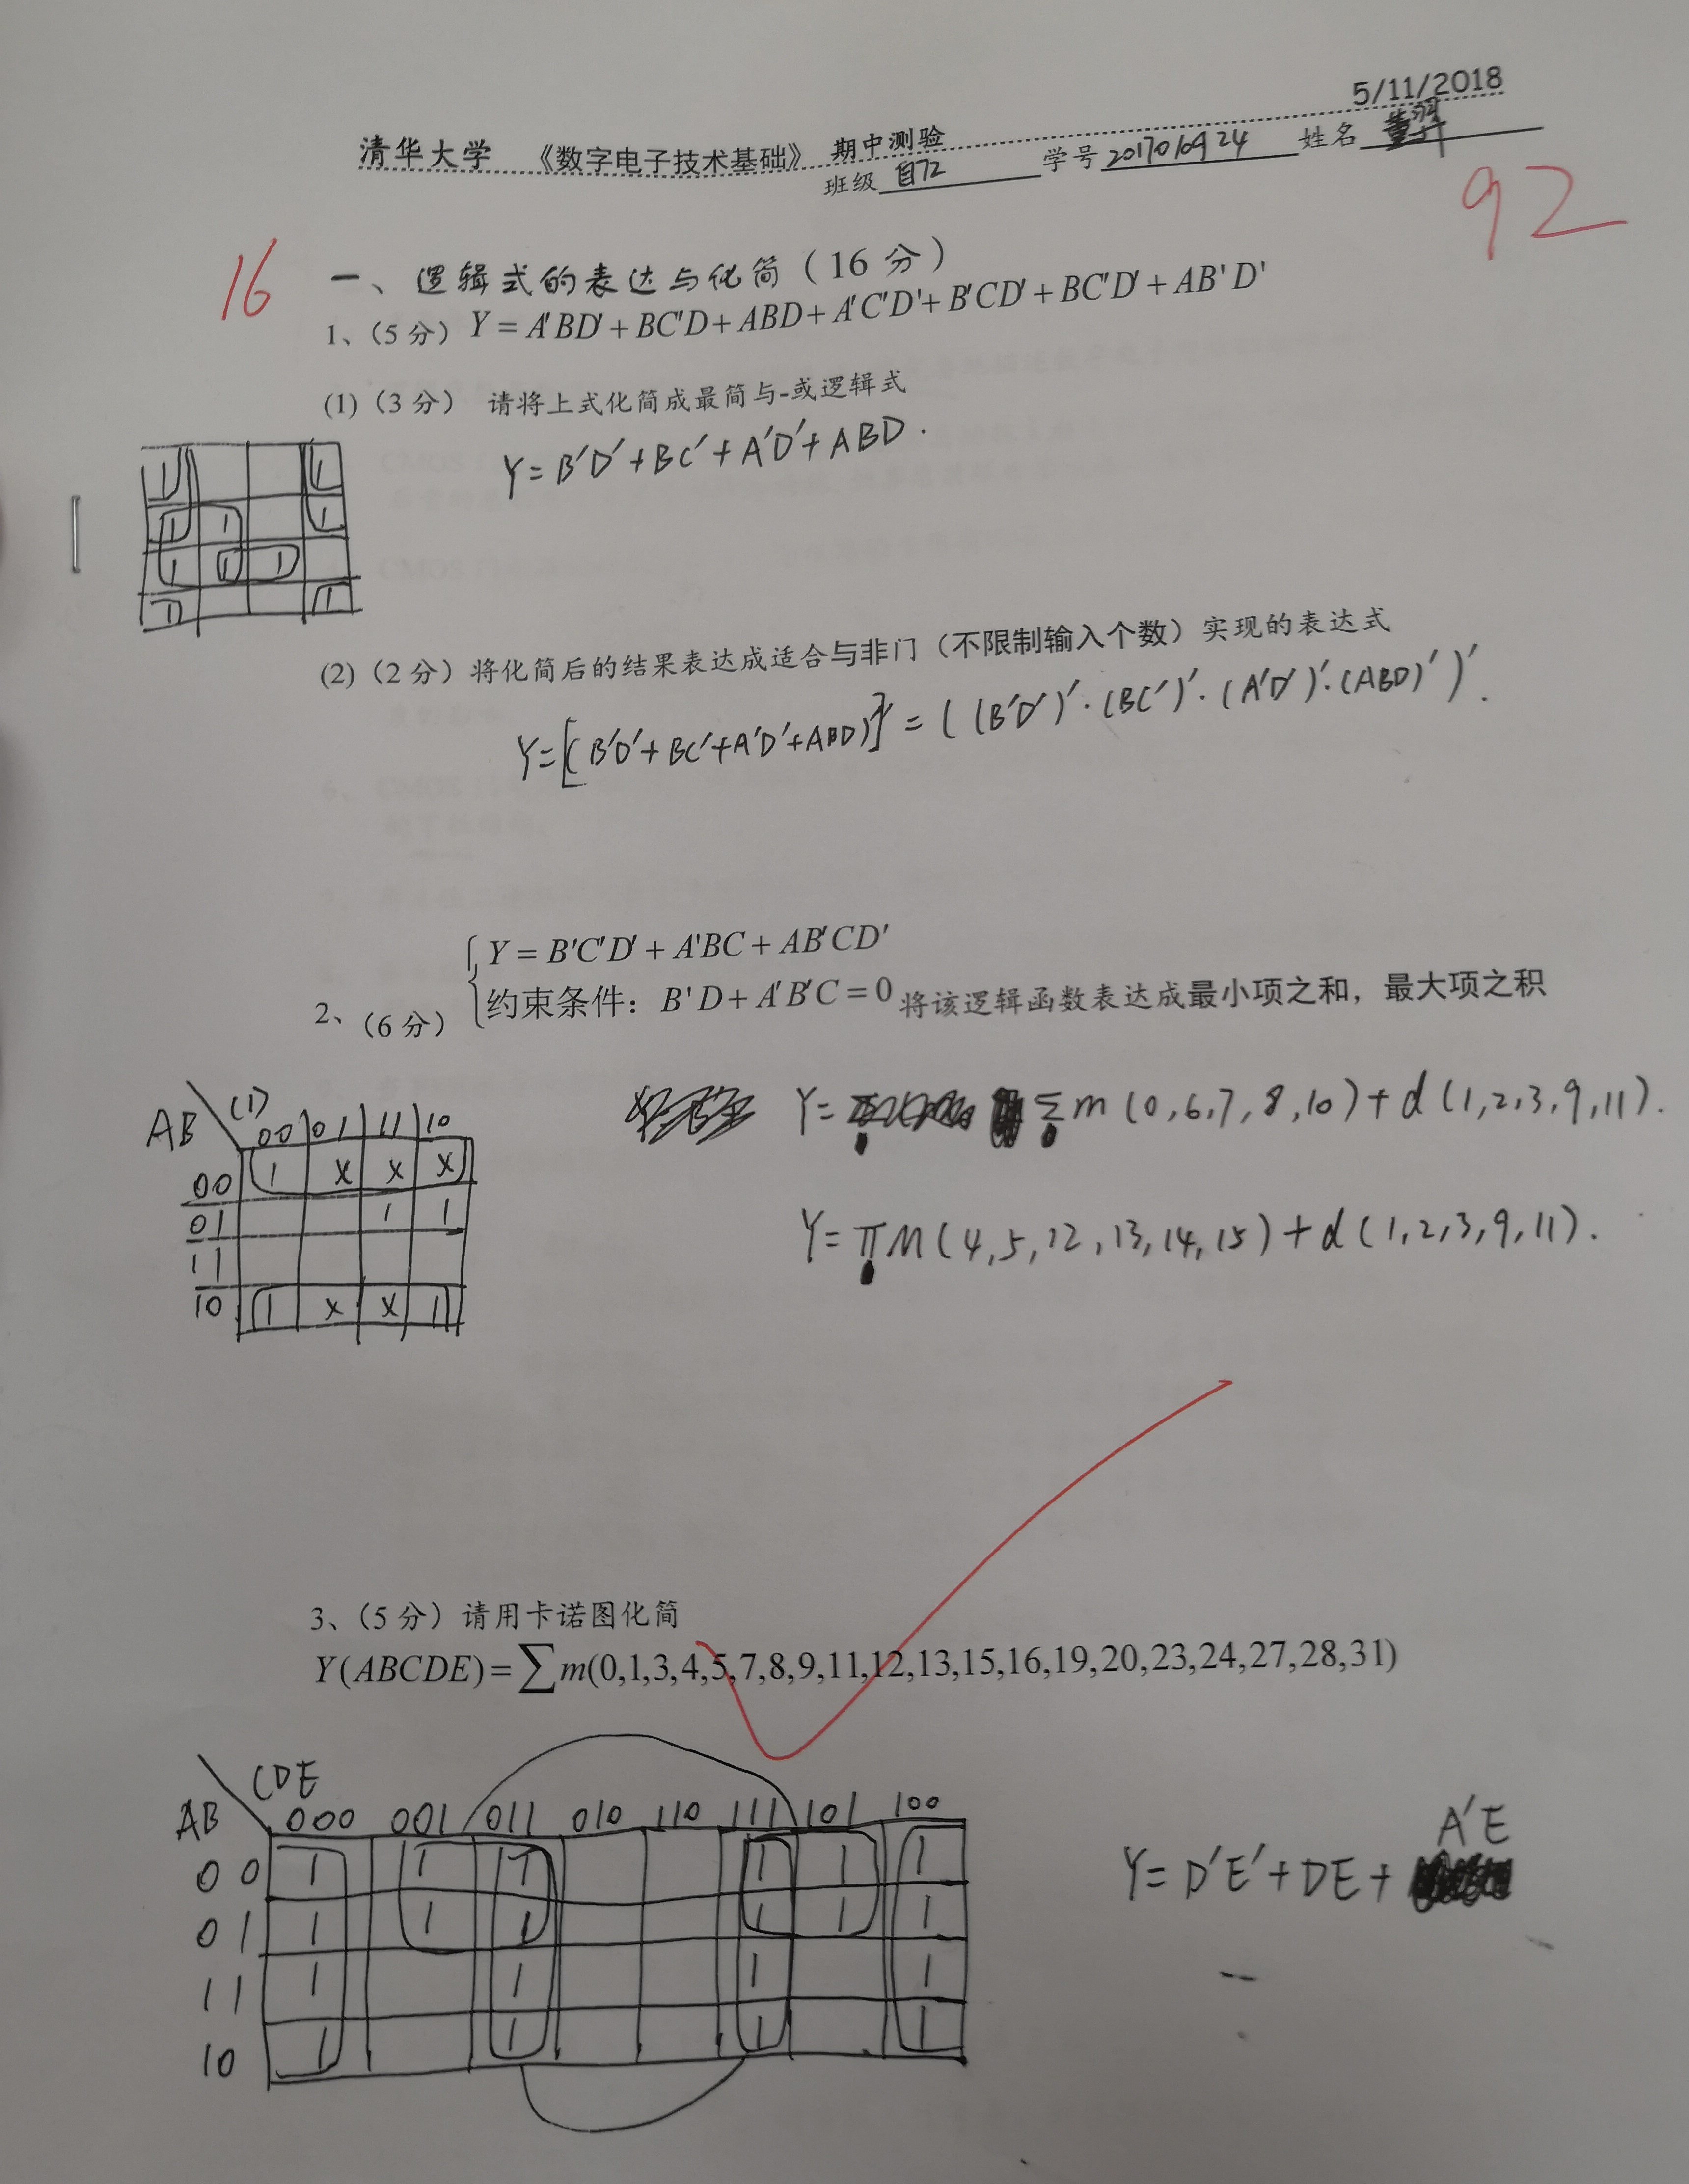 5/11/2018
清华大学 《数字电子技术基础》 期中测验
班级 自72 学号 2017010924 姓名 董羿
92
16
一、逻辑式的表达与化简（16 分）
1、（5 分） Y = A'BD' + BC'D + ABD + A'C'D' + B'CD' + BC'D' + AB'D'
(1)（3 分） 请将上式化简成最简与-或逻辑式
Y = B'D' + BC' + A'D' + ABD .
1 1
1 1 1
1 1 1
1 1
(2)（2 分）将化简后的结果表达成适合与非门（不限制输入个数）实现的表达式
Y = [(B'D' + BC' + A'D' + ABD)']' = ((B'D')' · (BC')' · (A'D')' · (ABD)')' .
Y = B'C'D' + A'BC + AB'CD'
约束条件：B'D + A'B'C = 0 将该逻辑函数表达成最小项之和，最大项之积
2、（6 分）
Y = Σm (0,6,7,8,10) + d (1,2,3,9,11) .
Y = πM (4,5,12,13,14,15) + d (1,2,3,9,11) .
AB (1)
00 01 11 10
00 1 x x x
01 1 1
11
10 1 x x 1
3、（5 分）请用卡诺图化简
Y(ABCDE) = ∑m(0,1,3,4,5,7,8,9,11,12,13,15,16,19,20,23,24,27,28,31)
AB CDE
000 001 011 010 110 111 101 100
00 1 1 1 1 1 1
01 1 1 1 1 1 1
11 1 1 1 1
10 1 1 1 1
Y = D'E' + DE + A'E